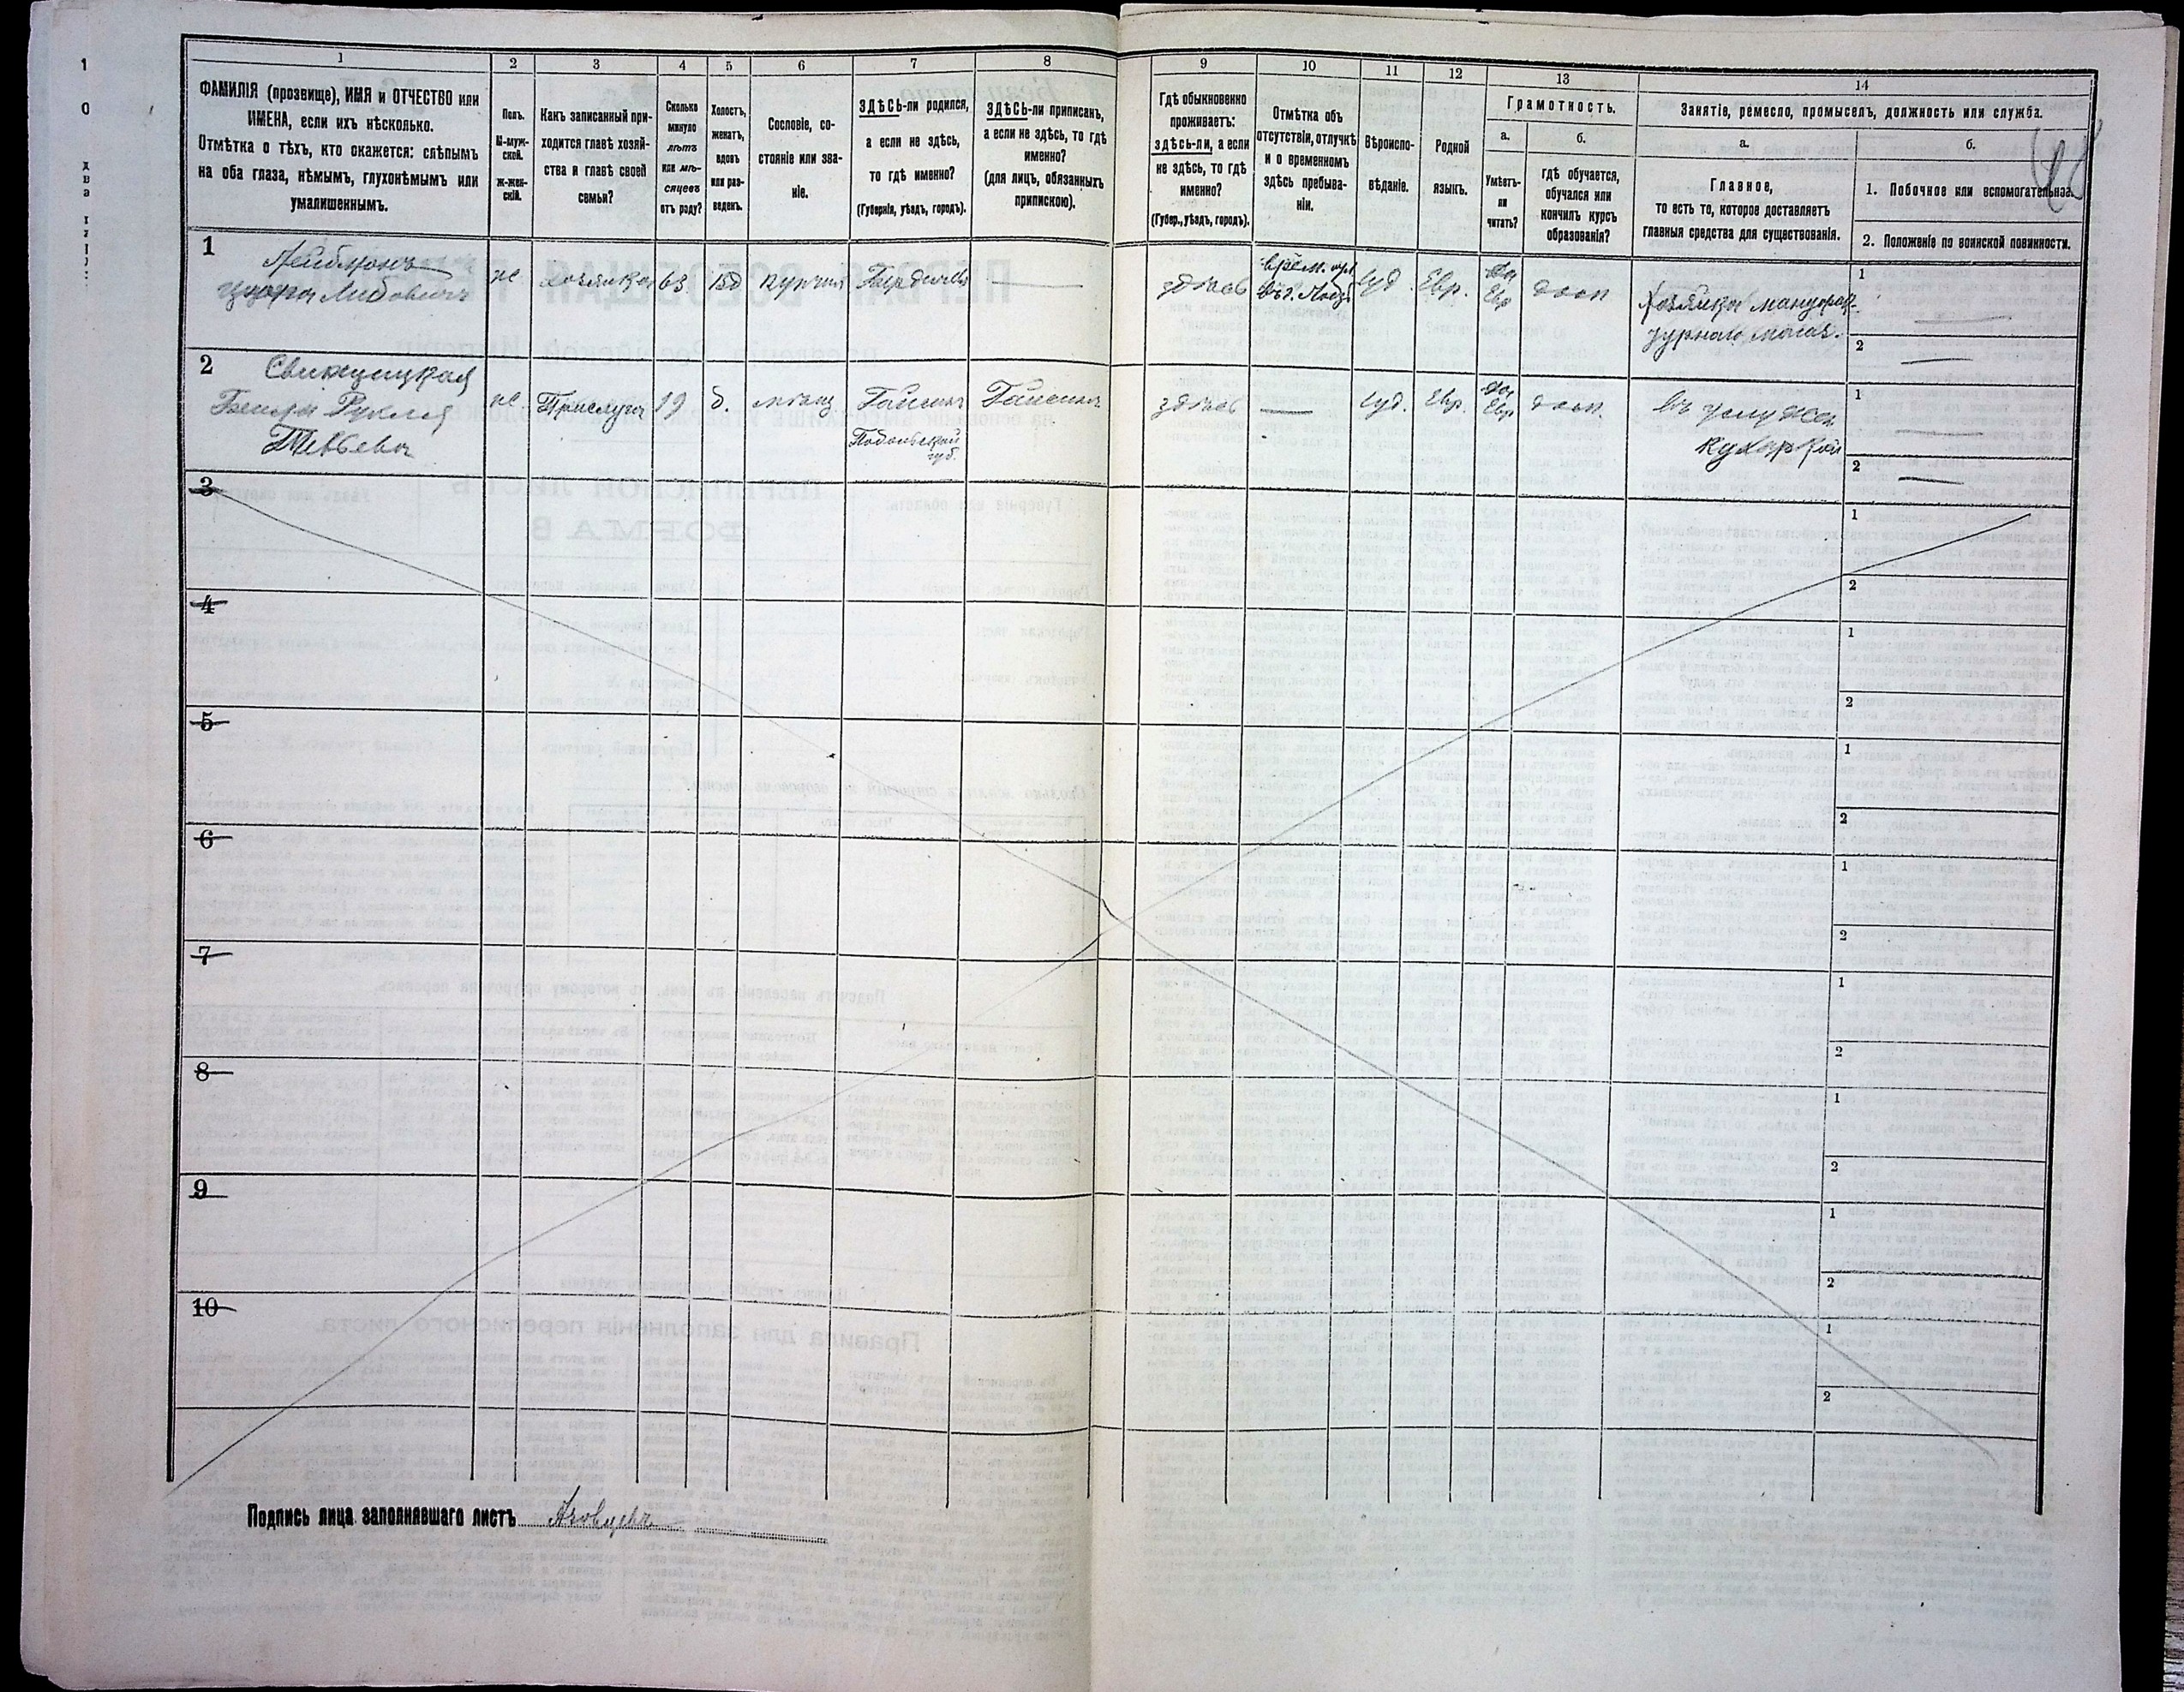 1
0
два
1
2
3
4
5
6
7
8
9
10
11
12
13
14
ФАМИЛІЯ (прозвище), ИМЯ и ОТЧЕСТВО или
ИМЕНА, если ихъ нѣсколько.
Отмѣтка о тѣхъ, кто окажется: слѣпымъ
на оба глаза, нѣмымъ, глухонѣмымъ или
умалишеннымъ.
Полъ.
М-муж-
ской.
Ж-жен-
скій.
Какъ записанный при-
ходится главѣ хозяй-
ства и главѣ своей
семьи?
Сколько
минуло
лѣтъ
или мѣ-
сяцевъ
отъ роду?
Холостъ,
женатъ,
вдовъ
или раз-
веденъ.
Сословіе, со-
стояніе или зва-
ніе.
ЗДѢСЬ-ли родился,
а если не здѣсь,
то гдѣ именно?
(Губернія, уѣздъ, городъ).
ЗДѢСЬ-ли приписан,
а если не здѣсь, то гдѣ
именно?
(для лицъ, обязанныхъ
припискою).
Гдѣ обыкновенно
проживаетъ:
здѣсь-ли, а если
не здѣсь, то гдѣ
именно?
(Губер., уѣздъ, городъ).
Отмѣтка объ
отсутствіи, отлучкѣ
и о временномъ
здѣсь пребыва-
ніи.
Вѣроиспо-
вѣданіе.
Родной
языкъ.
Грамотность.
а.
б.
Умѣетъ-
ли
читать?
гдѣ обучается,
обучался или
кончилъ курсъ
образованія?
Занятіе, ремесло, промыселъ, должность или служба.
а.
б.
Главное,
то есть то, которое доставляетъ
главныя средства для существованія.
1. Побочное или вспомогательное.
2. Положеніе по воинской повинности.
1
хозяйка
63
вд
Бердичевъ
здѣсь
Іуд.
Евр.
да
Евр
дом
Хозяйка мануфак-
турнаго магаз.
1
2
2
Прислуга
19
д.
мѣщ
Гайсинъ
Подольской
губ.
Гайсинъ
здѣсь
Іуд.
Евр.
да
Евр
дом.
въ услужен
кухаркой
1
2
3
1
2
4
1
2
5
1
2
6
1
2
7
1
2
8
1
2
9
1
2
10
1
2
Подпись лица заполнявшаго листъ